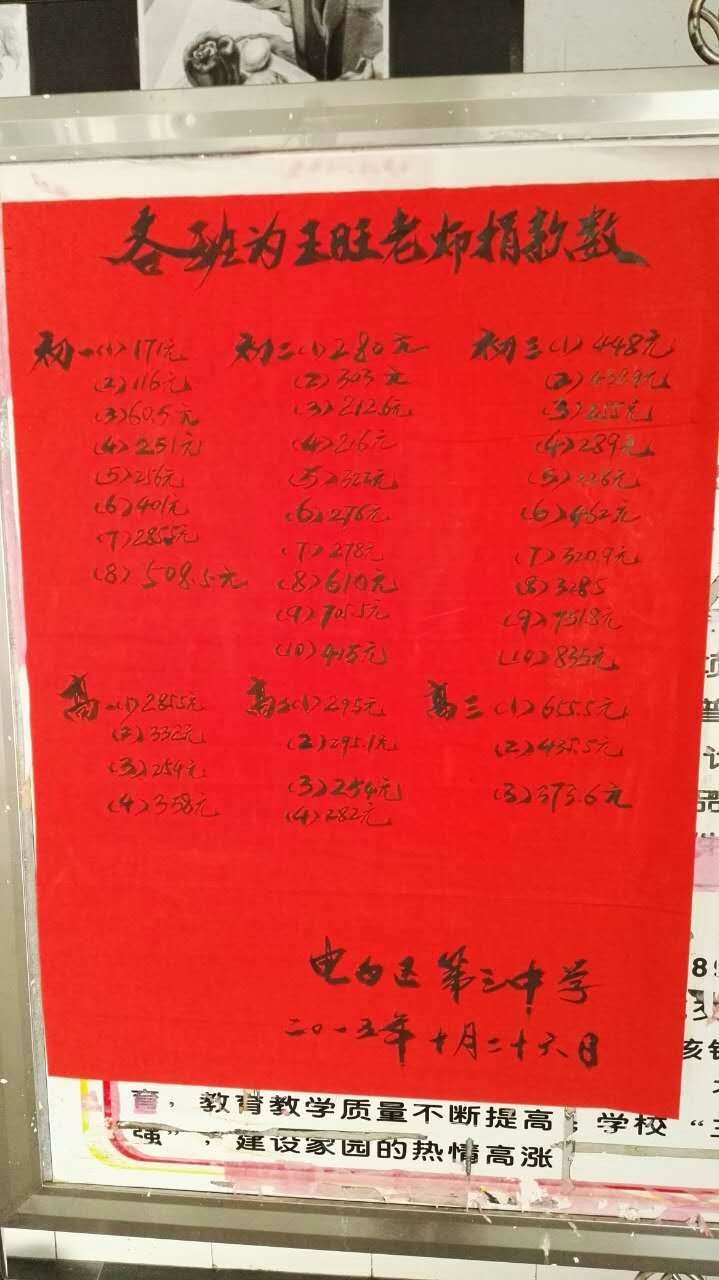 各班为王旺老师捐款数
初一(1)171元
(2)116元
(3)60.5元
(4)251元
(5)256元
(6)401元
(7)285.5元
(8)508.5元
初二(1)280元
(2)303元
(3)212.6元
(4)216元
(5)323元
(6)276元
(7)278元
(8)610元
(9)705.5元
(10)415元
初三(1)448元
(2)
(3)255元
(4)289元
(5)226元
(6)462元
(7)320.9元
(8)328.5
(9)751.8元
(10)835元
高一(1)285.5元
(2)332元
(3)254元
(4)358元
高二(1)295元
(2)295.1元
(3)254元
(4)282元
高三(1)655.5元
(2)435.5元
(3)373.6元
电白区第三中学
二〇一五年十月二十六日
育，教育教学质量不断提高；学校“
强”，建设家园的热情高涨